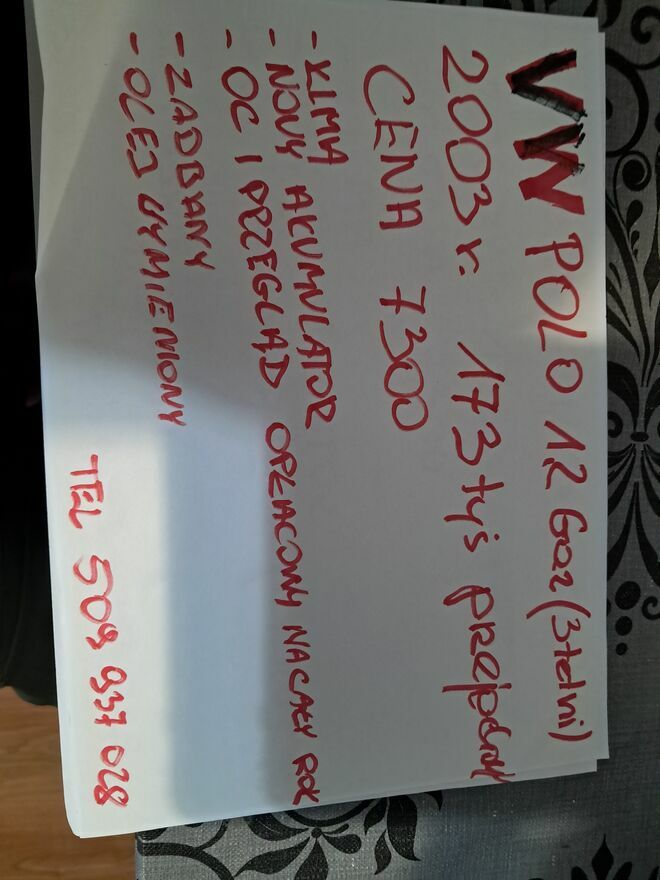 VW POLO 1.2 Gaz (3 letni)
2003 r. 173 tyś przejechał
CENA 7300
- KLIMA
- NOWY AKUMULATOR
- OC I PRZEGLAD OPŁACONY NA CAŁY ROK
- ZADBANY
- OLEJ WYMIENIONY
TEL 509 937 028